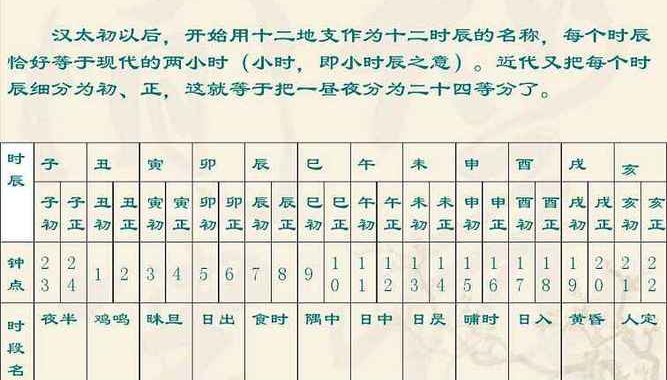 汉太初以后，开始用十二地支作为十二时辰的名称，每个时辰
恰好等于现代的两小时（小时，即小时辰之意）。近代又把每个时
辰细分为初、正，这就等于把一昼夜分为二十四等分了。
时辰 子 丑 寅 卯 辰 巳 午 未 申 酉 戌 亥
子初 子正 丑初 丑正 寅初 寅正 卯初 卯正 辰初 辰正 巳初 巳正 午初 午正 未初 未正 申初 申正 酉初 酉正 戌初 戌正 亥初 亥正
钟点 23 24 1 2 3 4 5 6 7 8 9 10 11 12 13 14 15 16 17 18 19 20 21 22
时段名 夜半 鸡鸣 昧旦 日出 食时 隅中 日中 日昃 晡时 日入 黄昏 人定